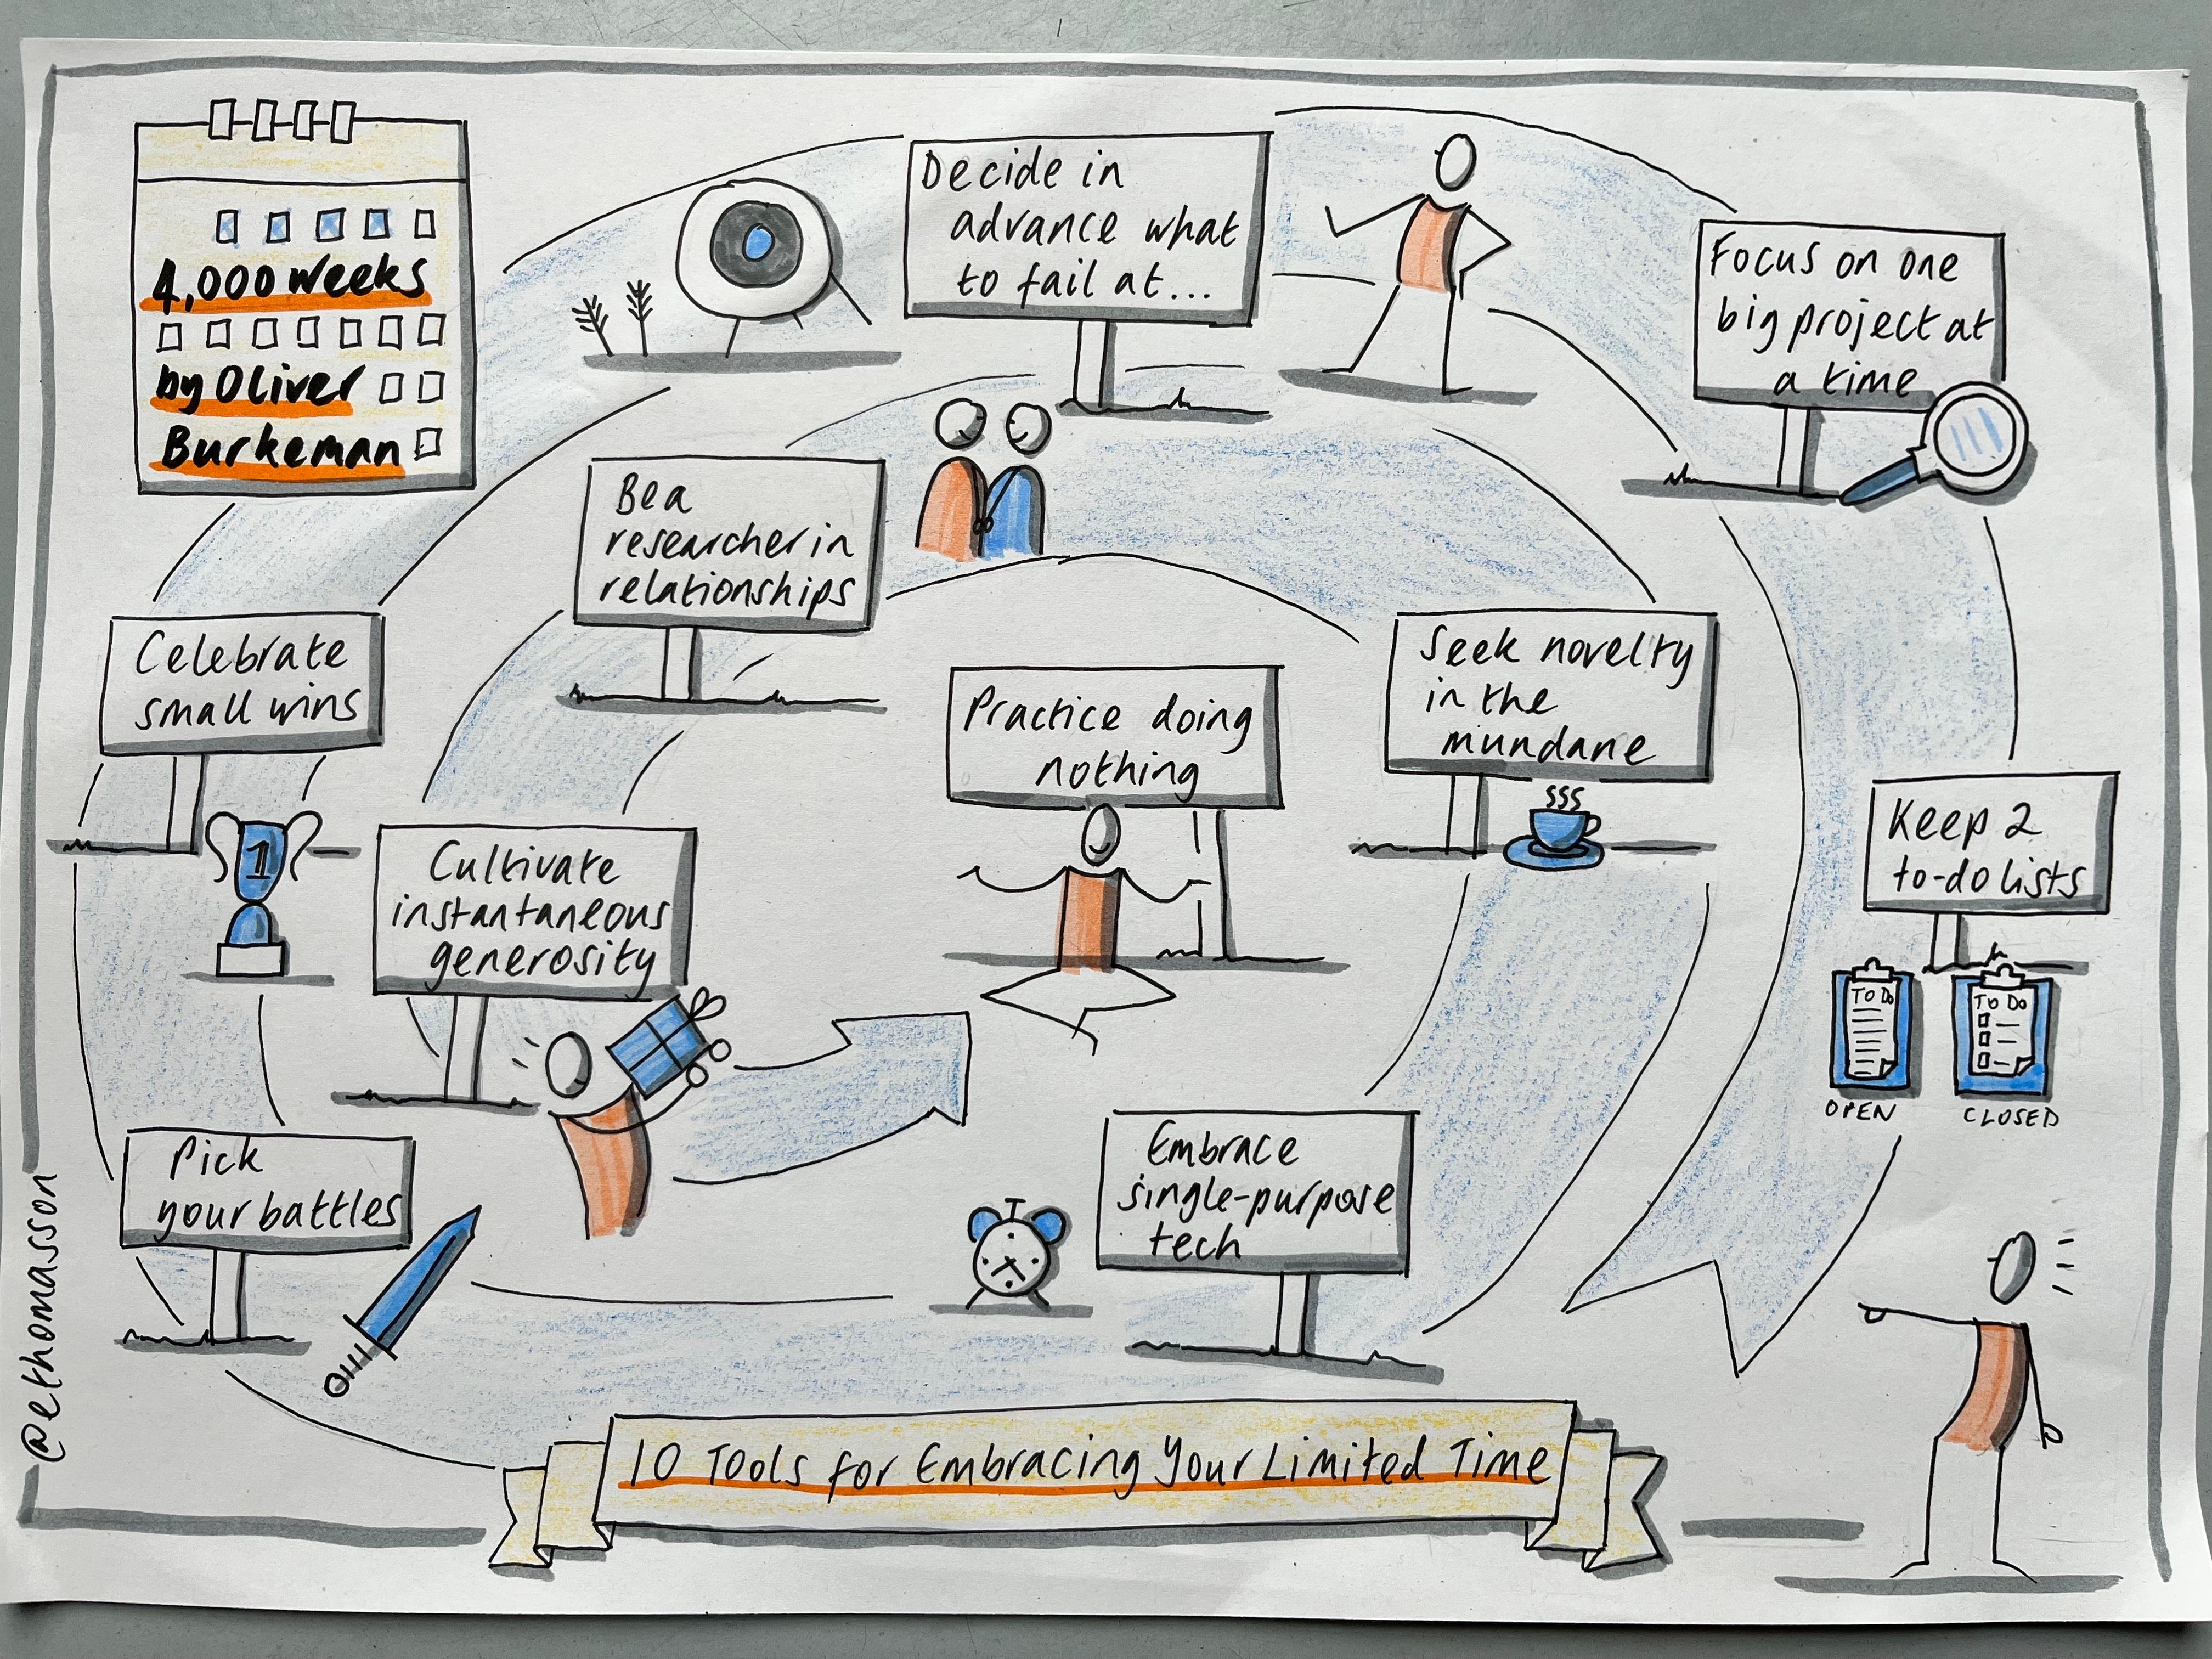 4,000 weeks
by Oliver
Burkeman
Decide in
advance what
to fail at...
Focus on one
big project at
a time
Be a
researcher in
relationships
Celebrate
small wins
1
Practice doing
nothing
Seek novelty
in the
mundane
Keep 2
to-do lists
TO DO
TO DO
OPEN
CLOSED
Cultivate
instantaneous
generosity
Pick
your battles
Embrace
single-purpose
tech
10 Tools for Embracing Your Limited Time
@ethomasson